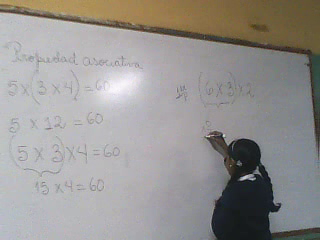 Propiedad asociativa
5 x (3 x 4) = 60
5 x 12 = 60
(5 x 3) x 4 = 60
15 x 4 = 60
(6 x 3) x 2